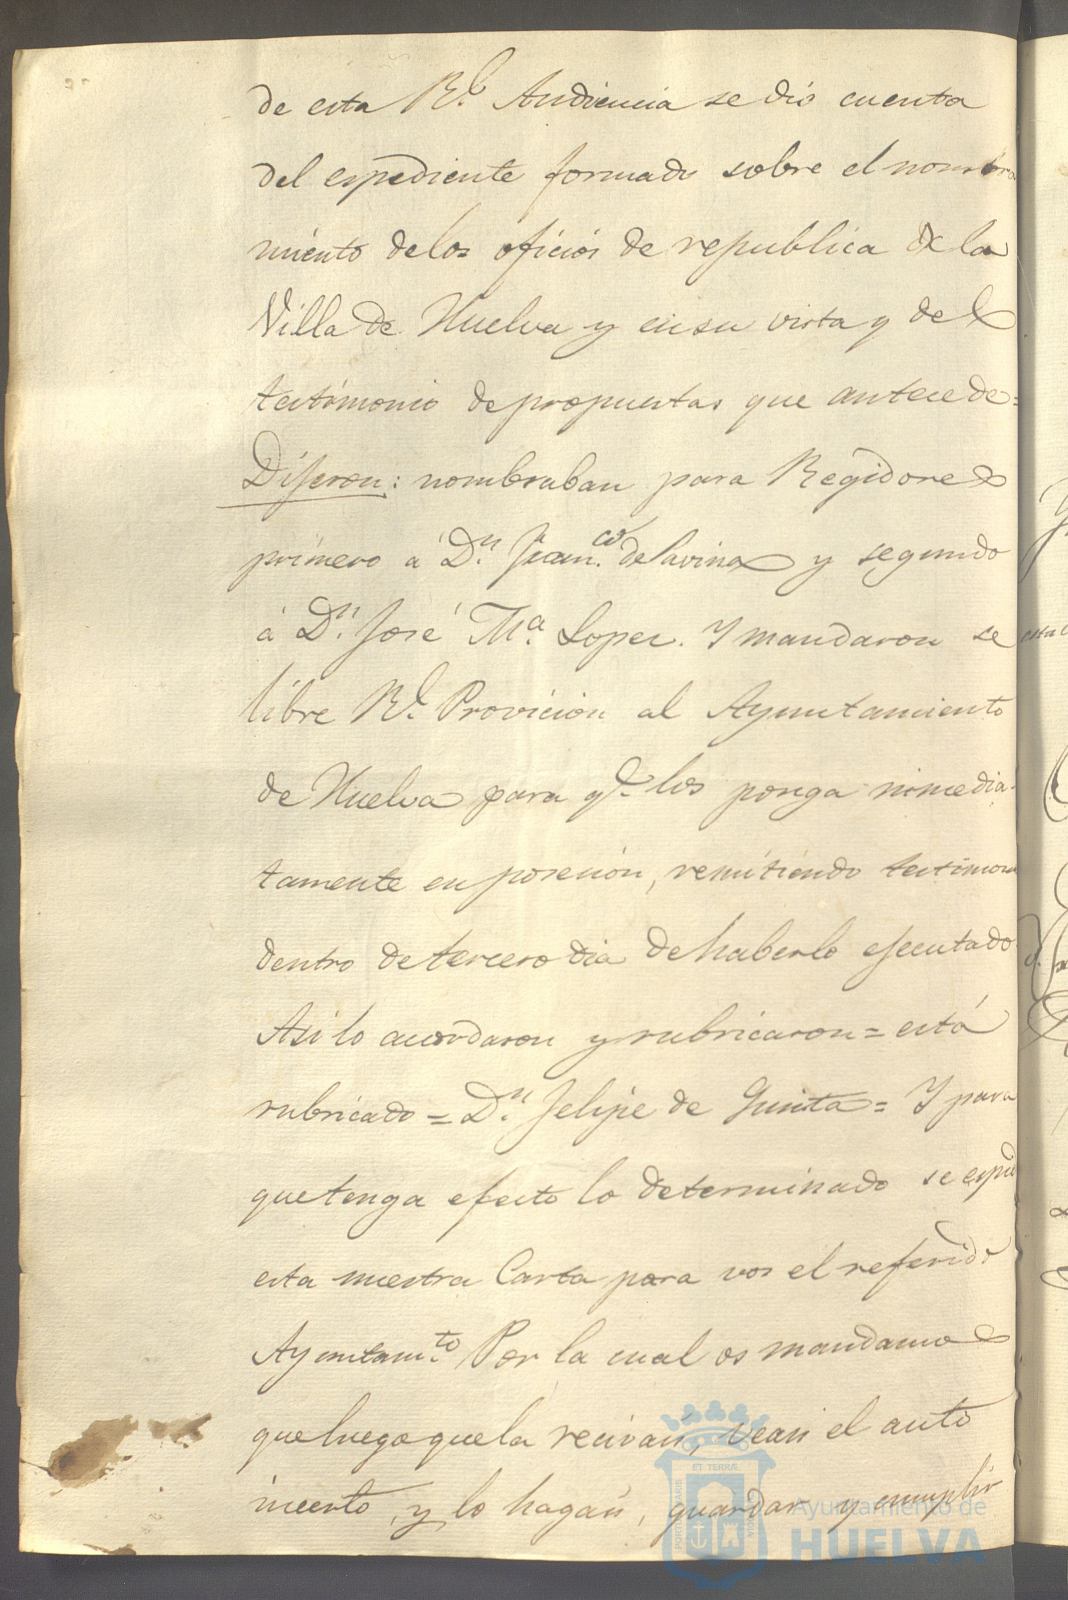 de esta Rl. Audiencia se dio cuenta
del espediente formado sobre el nombra
miento de los oficios de republica de la
Villa de Huelva y en su vista y del
testimonio de propuestas que antecede=
Dijeron: nombraban para Regidores
primero a Dn. Juan de la
y segundo
á Dn. José Ma. Lopez. Y mandaron se
libre Rl. Provicion al Ayuntamiento
de Huelva para qe. los ponga inmedia
tamente en posesion, remitiendo testimon
dentro de tercero dia de haberlo ejecutado
Asi lo acordaron y rubricaron = está
rubricado = Dn. Felipe de = Y para
que tenga efecto lo determinado se espid
esta nuestra Carta para vos el referido
Ayuntamto. Por la cual os mandamos
que luego que la recivais, veais el auto
incerto, y lo hagais, guardar y cumplir
Ayuntamiento de
HUELVA